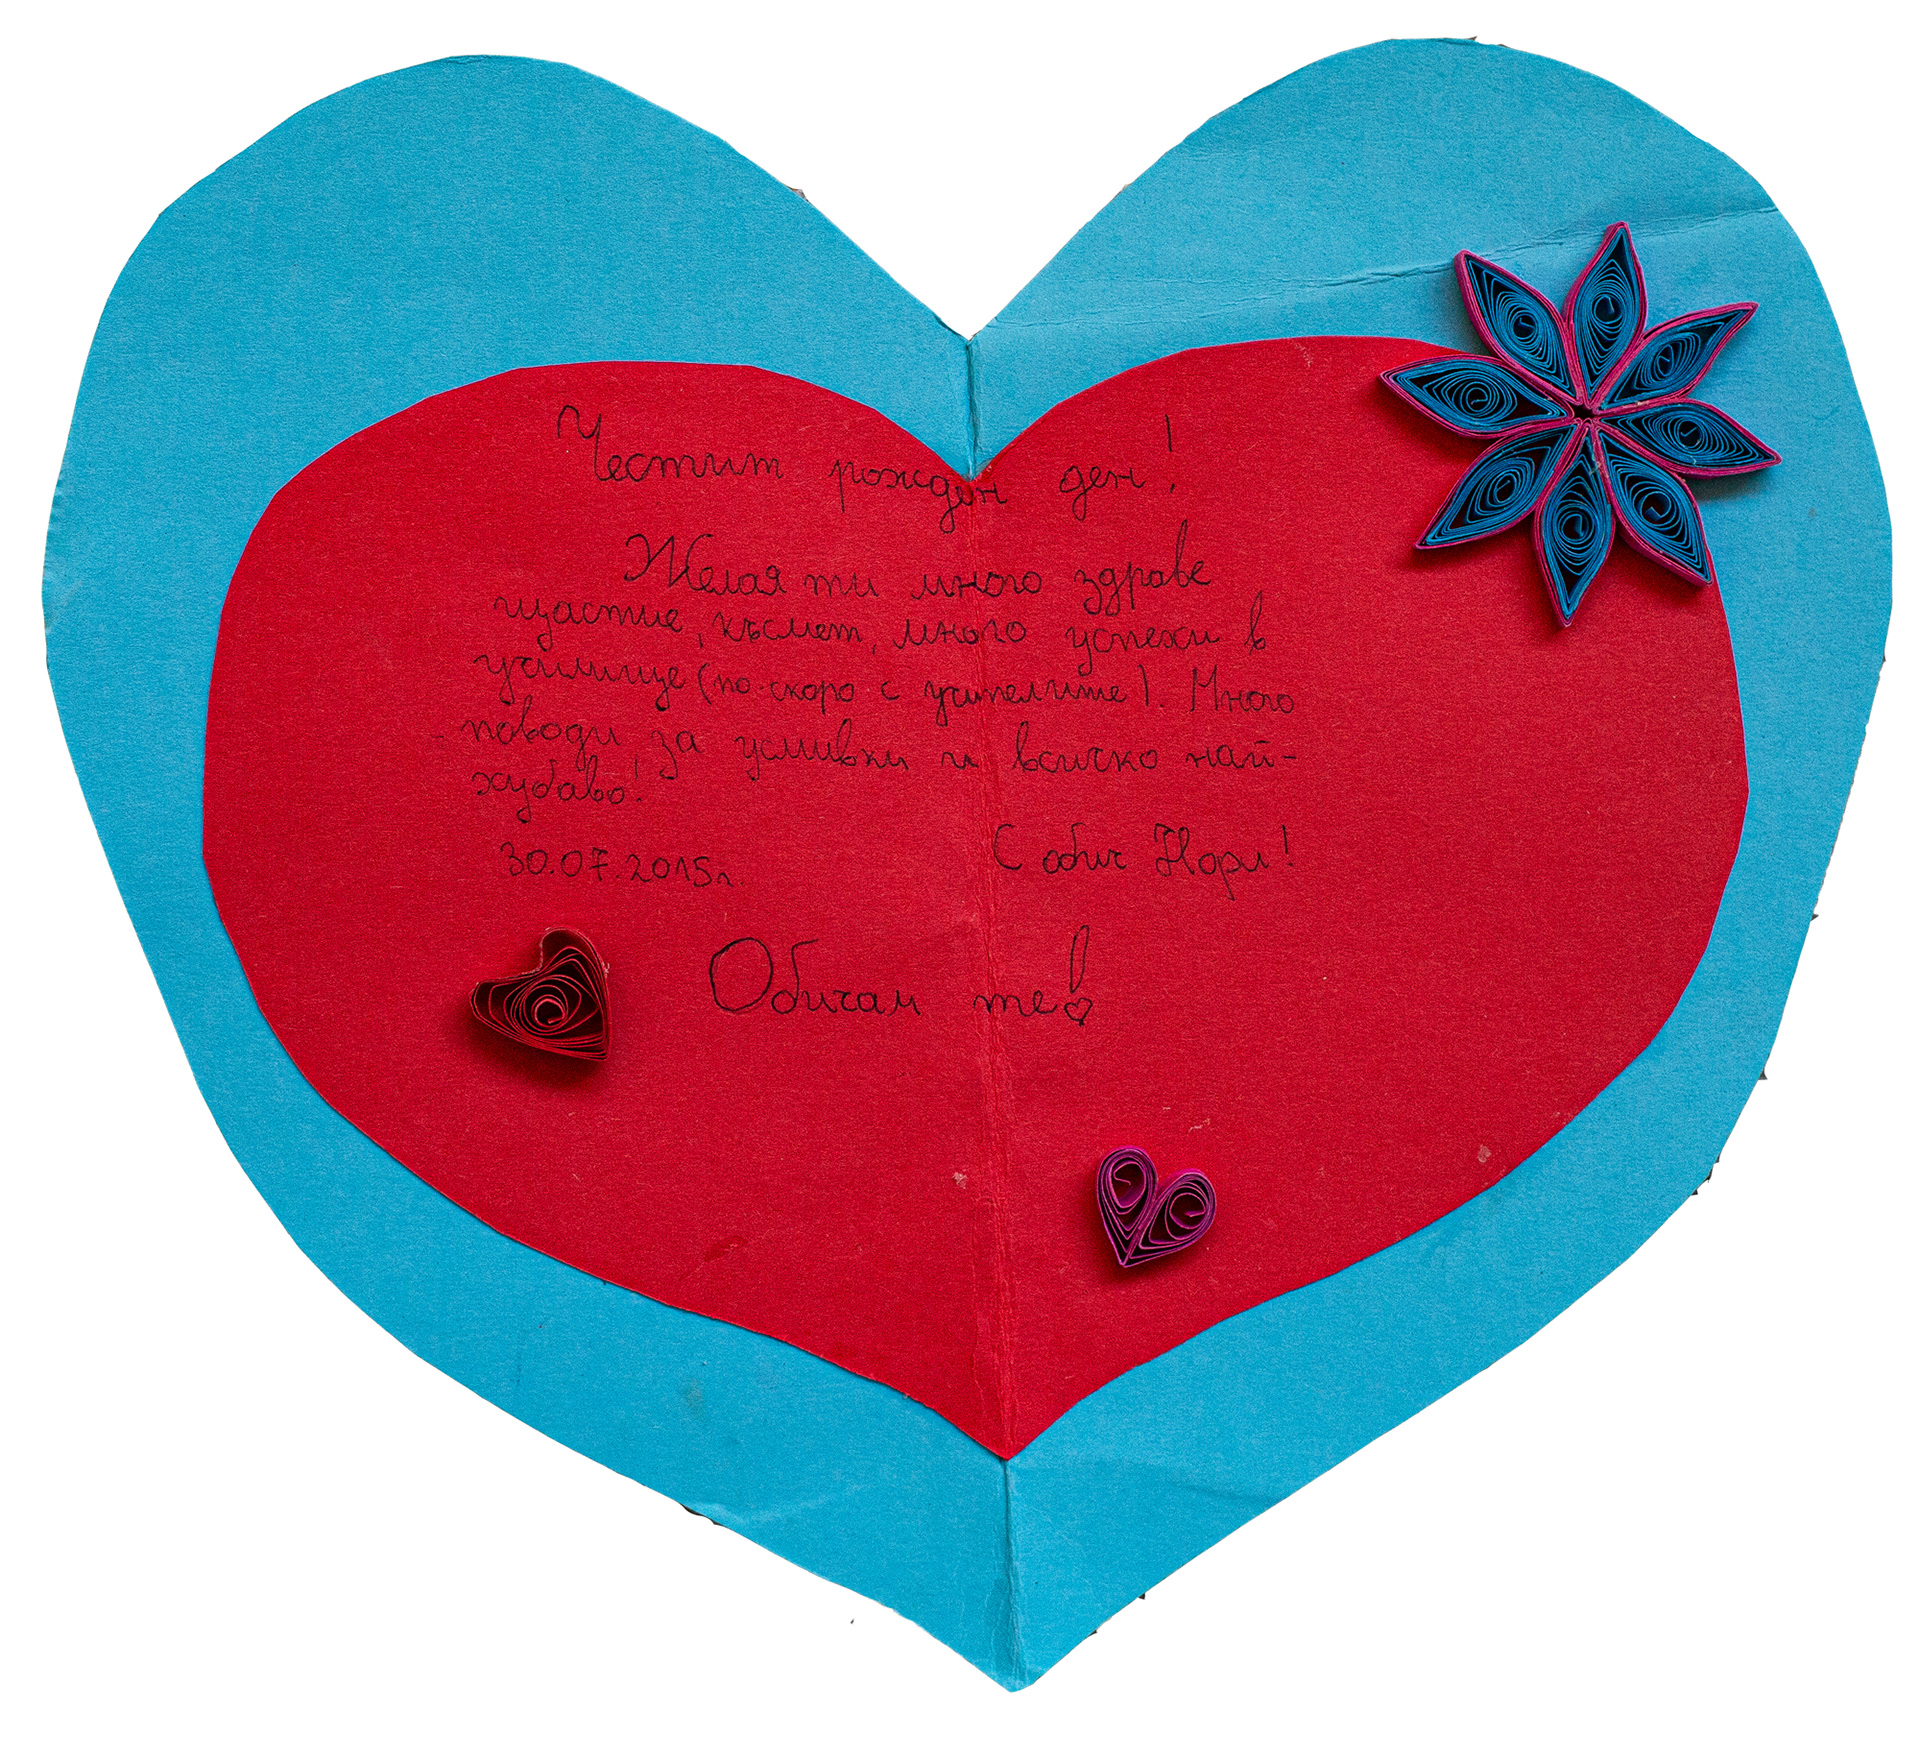 Честит рожден ден!
Желая ти много здраве
щастие, късмет, много успехи в
училище (по-скоро с учителите). Много
поводи за усмивки и всичко най-
хубаво!
30.07.2015г.
С обич Нори!
Обичам те!